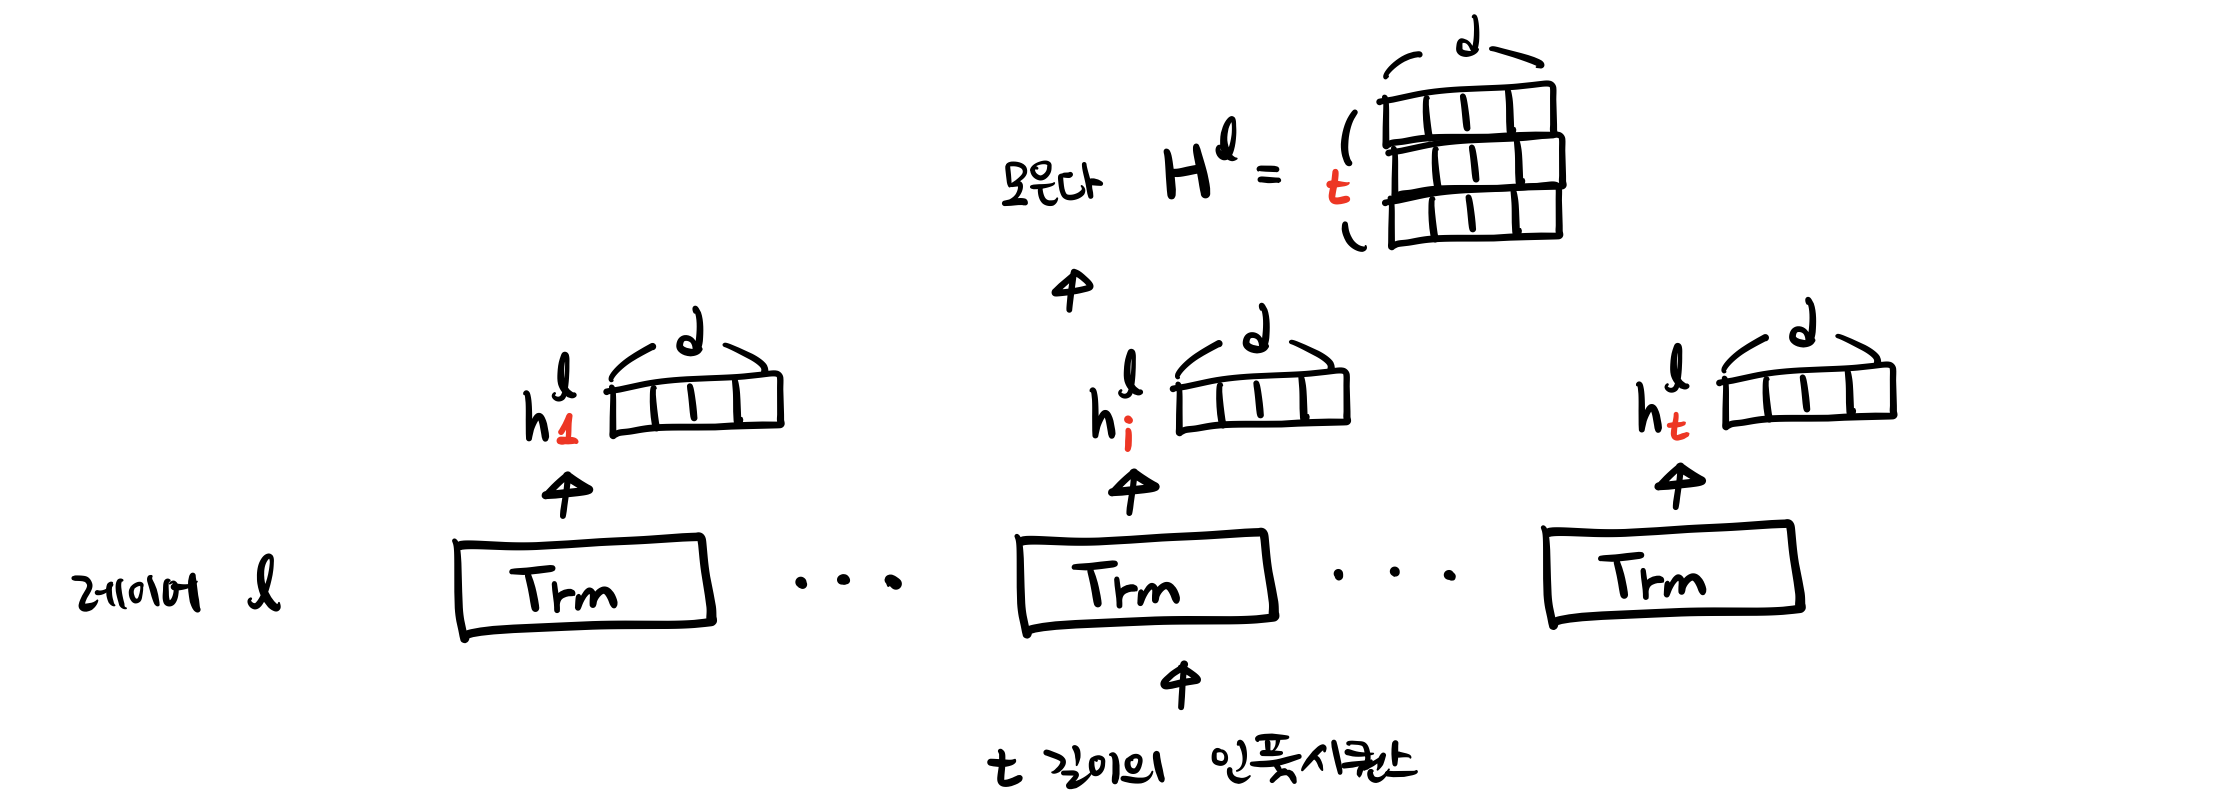 d
모은다 H^l = t
d d d
h_1^l h_i^l h_t^l
레이어 l Trm ... Trm ... Trm
t 길이의 인풋시퀀스